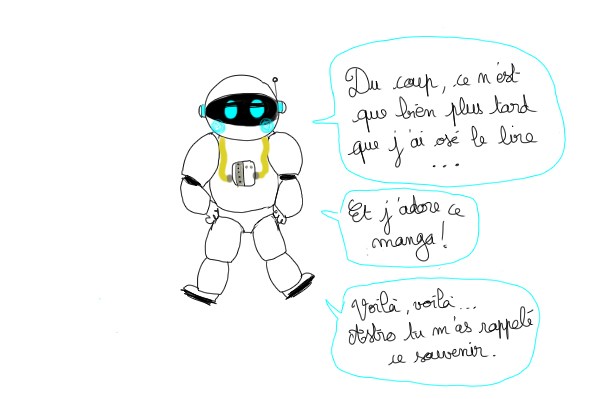 Du coup, ce n'est
que bien plus tard
que j'ai osé le lire
...
Et j'adore ce
manga !
Voilà, voilà...
Astro tu m'as rappelé
ce souvenir.